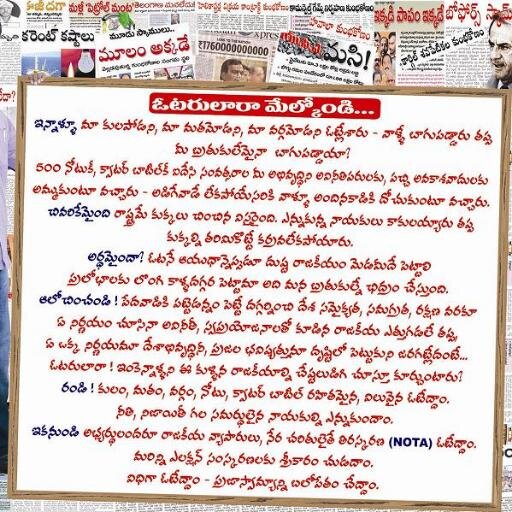 కరెంట్ కష్టాలు
మూలం అక్కడే
ఓటరులారా మేల్కోండి...
ఇన్నాళ్ళూ మా కులపోడని, మా మతమోడని, మా వర్గమోడని ఓట్లేశారు - వాళ్ళే బాగుపడ్డారు తప్ప
మీ బ్రతుకులేమైనా బాగుపడ్డాయా?
500 నోటుకీ, క్వాటర్ బాటిల్‌కీ ఐదేసి సంవత్సరాల మీ అభివృద్ధిని అవినీతిపరులకు, పచ్చి అవకాశవాదులకు
అమ్ముకుంటూ వచ్చారు - అడిగేవాడే లేకపోయేసరికి వాళ్ళూ అందినకాడికి దోచుకుంటూ వచ్చారు.
చివరికేమైంది రాష్ట్రమే కుక్కలు చించిన విస్తరైంది. ఎన్నుకున్న నాయకులు కాకులయ్యారు తప్ప
కుక్కల్ని తరిమికొట్టే కర్రావలేకపోయారు.
అర్థమైందా? ఓటనే ఆయుధాన్నెప్పుడూ దుష్ట రాజకీయం మెడమీదే పెట్టాలి
ప్రలోభాలకు లొంగి కాళ్ళదగ్గర పెట్టామా అది మన బ్రతుకుల్నే ఛిద్రం చేస్తుంది.
ఆలోచించండి ! పేదవాడికి పట్టెడన్నం పెట్టే దగ్గర్నించి దేశ సమైక్యత, సమగ్రత, రక్షణ వరకూ
ఏ నిర్ణయం చూసినా అవినీతీ, స్వప్రయోజనాలతో కూడిన రాజకీయ ఎత్తుగడలే తప్ప,
ఏ ఒక్క నిర్ణయమూ దేశాభివృద్ధినీ, ప్రజల భవిష్యత్తునూ దృష్టిలో పెట్టుకుని జరగట్లేదంటే...
ఓటరులారా ! ఇంకెన్నాళ్ళని ఈ కుళ్ళిన రాజకీయాల్ని చేష్టలుడిగి చూస్తూ కూర్చుంటారు?
రండి ! కులం, మతం, వర్గం, నోటు, క్వాటర్ బాటిల్ రహితమైన, విలువైన ఓటేద్దాం.
నీతి, నిజాయితీ గల సమర్థులైన నాయకుల్ని ఎన్నుకుందాం.
ఇకనుండి అభ్యర్థులందరూ రాజకీయ వ్యాపారులు, నేర చరితులైతే తిరస్కరణ (NOTA) ఓటేద్దాం.
మరిన్ని ఎలక్షన్ సంస్కరణలకు శ్రీకారం చుడదాం.
విధిగా ఓటేద్దాం - ప్రజాస్వామ్యాన్ని బలోపేతం చేద్దాం.